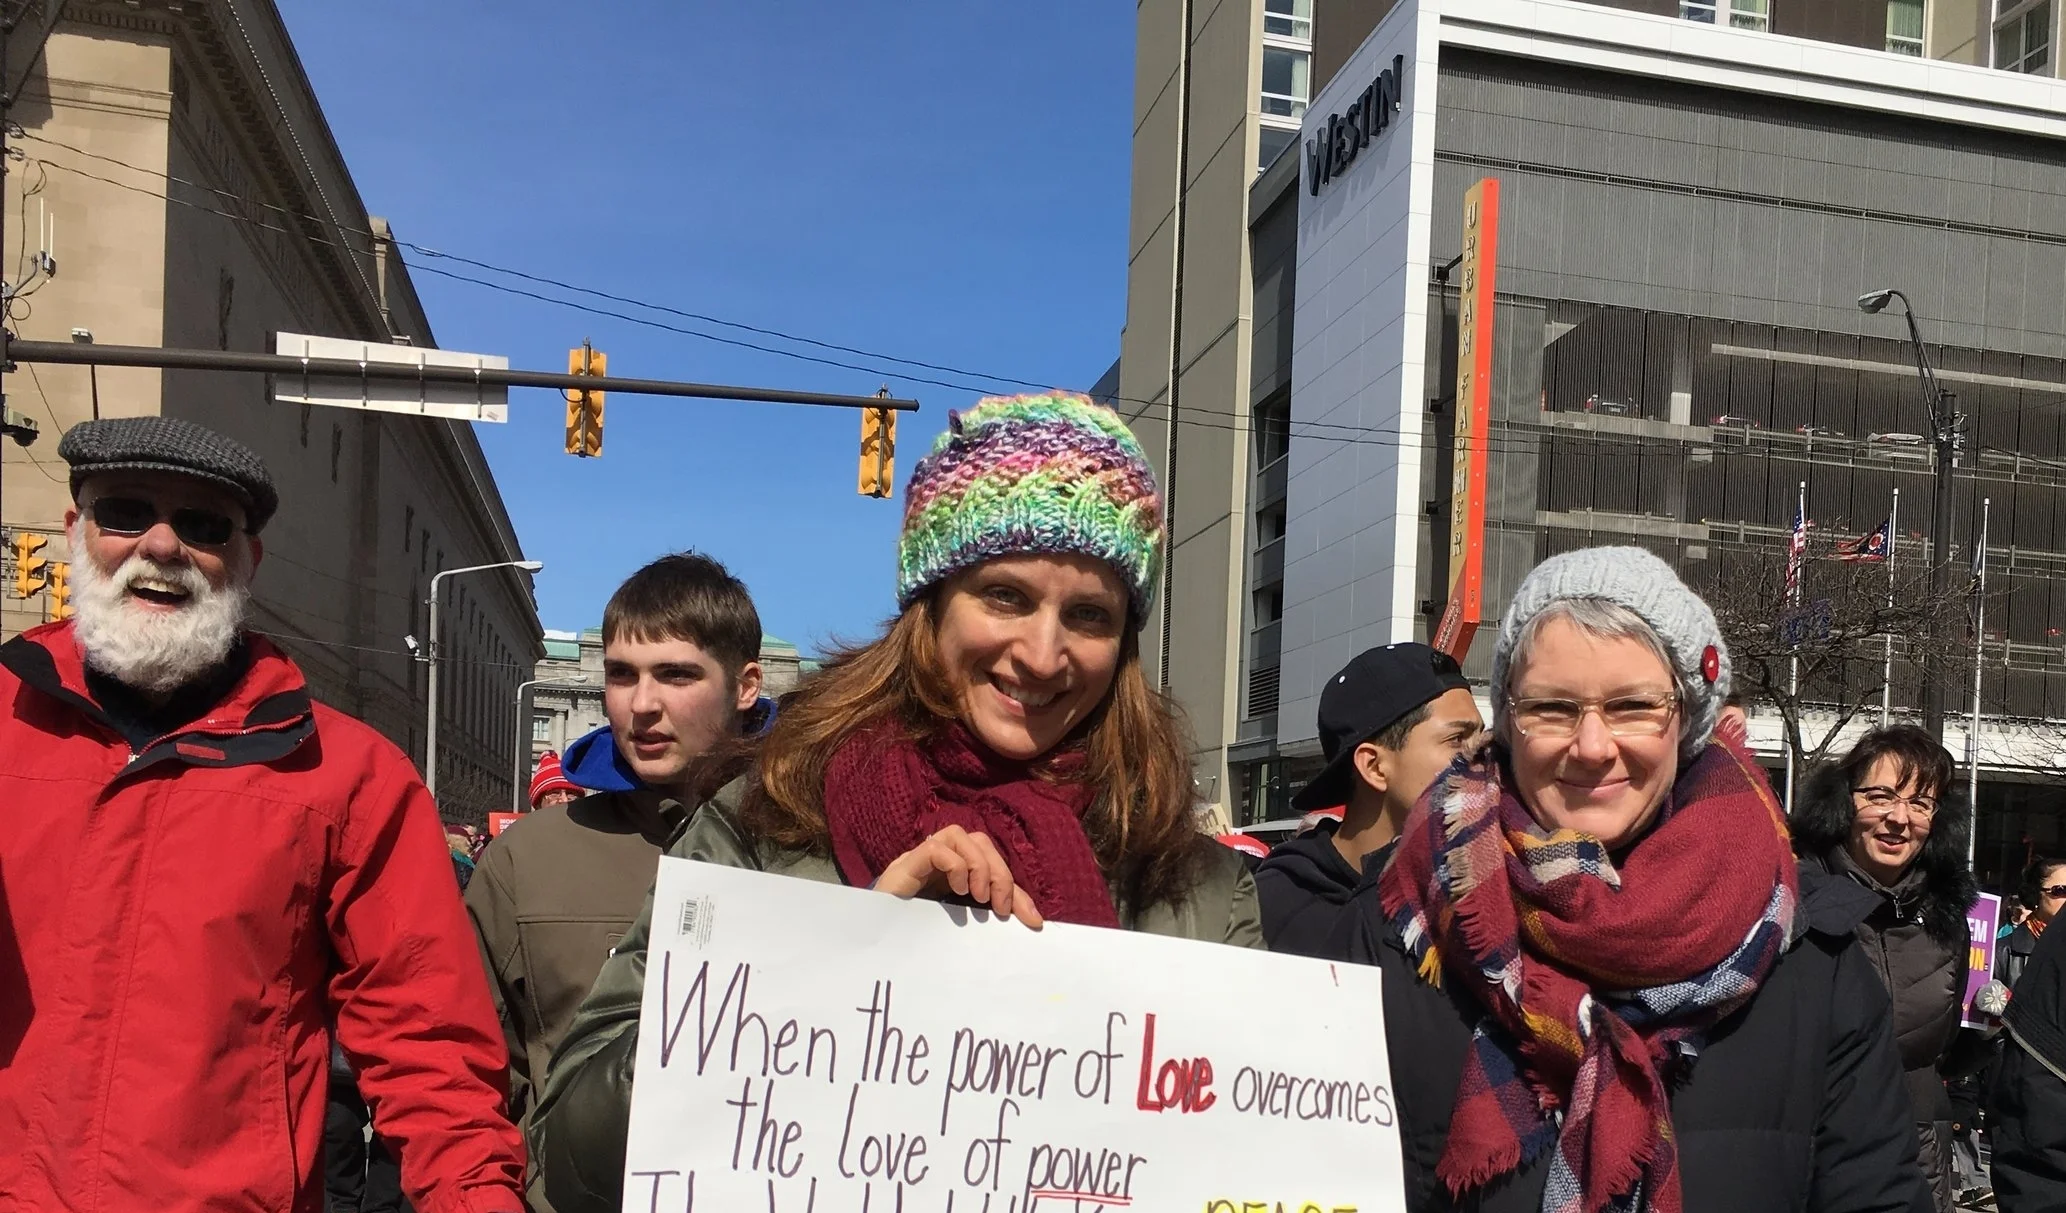 WESTIN
URBAN FARMER
When the power of Love overcomes
the love of power
PEACE